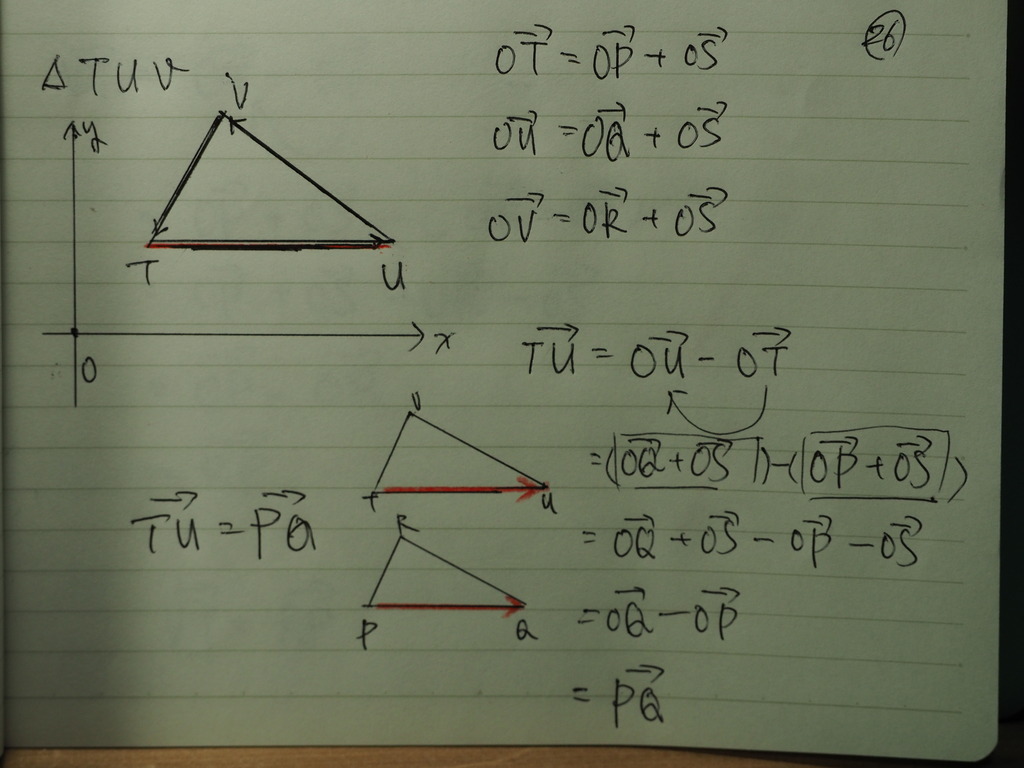 26
△TUV
V
y
T
U
x
O
OT→ = OP→ + OS→
OU→ = OQ→ + OS→
OV→ = OR→ + OS→
TU→ = OU→ - OT→
= (OQ→ + OS→) - (OP→ + OS→)
= OQ→ + OS→ - OP→ - OS→
= OQ→ - OP→
= PQ→
V
T
U
TU→ = PQ→
R
P
Q